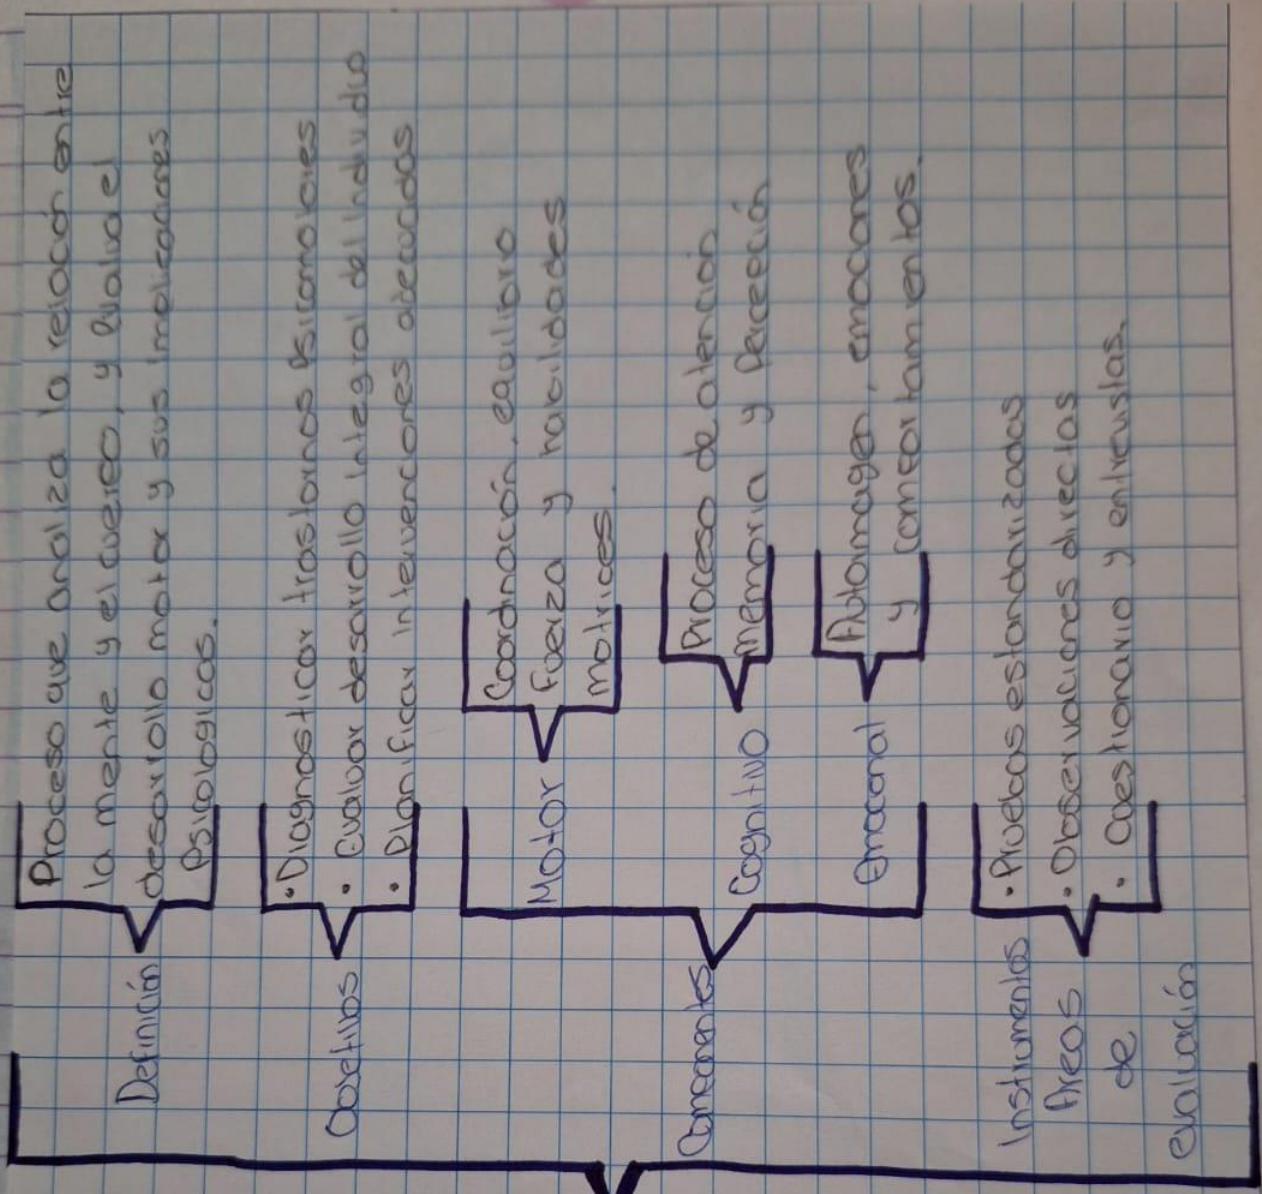 Definición
Proceso que analiza la relación entre
la mente y el cuerpo, y evalua el
desarrollo motor y sus implicaciones
Psicologicos.
Objetivos
• Diagnosticar trastornos Psicomotores
• Evaluar desarrollo integral del individuo
• Planificar intervenciones adecuadas
Componentes
Motor
Coordinación, equilibro
fuerza y habilidades
motrices.
Cognitivo
Proceso de atención
memoria y Percepción
Emocional
Autoimagen, emociones
y comportamientos.
Instrumentos
Areas
de
evaluación
• Pruebas estandarizadas
• Observaciones directas
• Cuestionario y entrevistas.